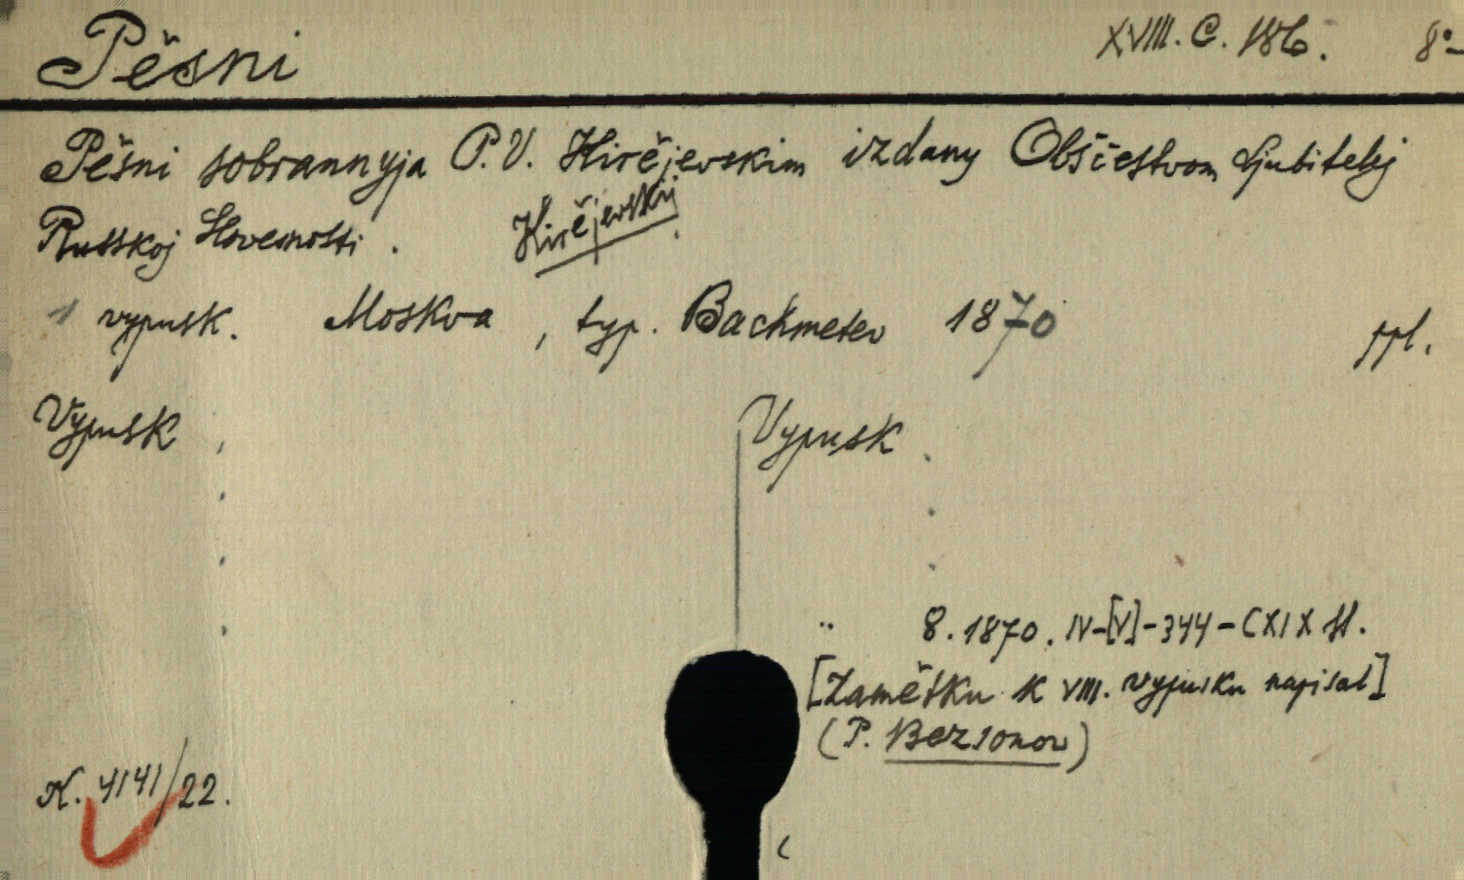 Pěsni XVIII. C. 186. 8°-
Pěsni sobrannyja P. V. Kirějevskim izdany Obščestvom Ljubitelej
Russkoj Slovesnosti. Kirějevskij.
1 vypusk. Moskva, typ. Bachmetev 1870 ppl.
Vypusk Vypusk
" 8. 1870. IV-[V]-344-CXIX st.
[Zamětku k VIII. vypusku napisal]
(P. Bezsonov)
K. 4141/22.